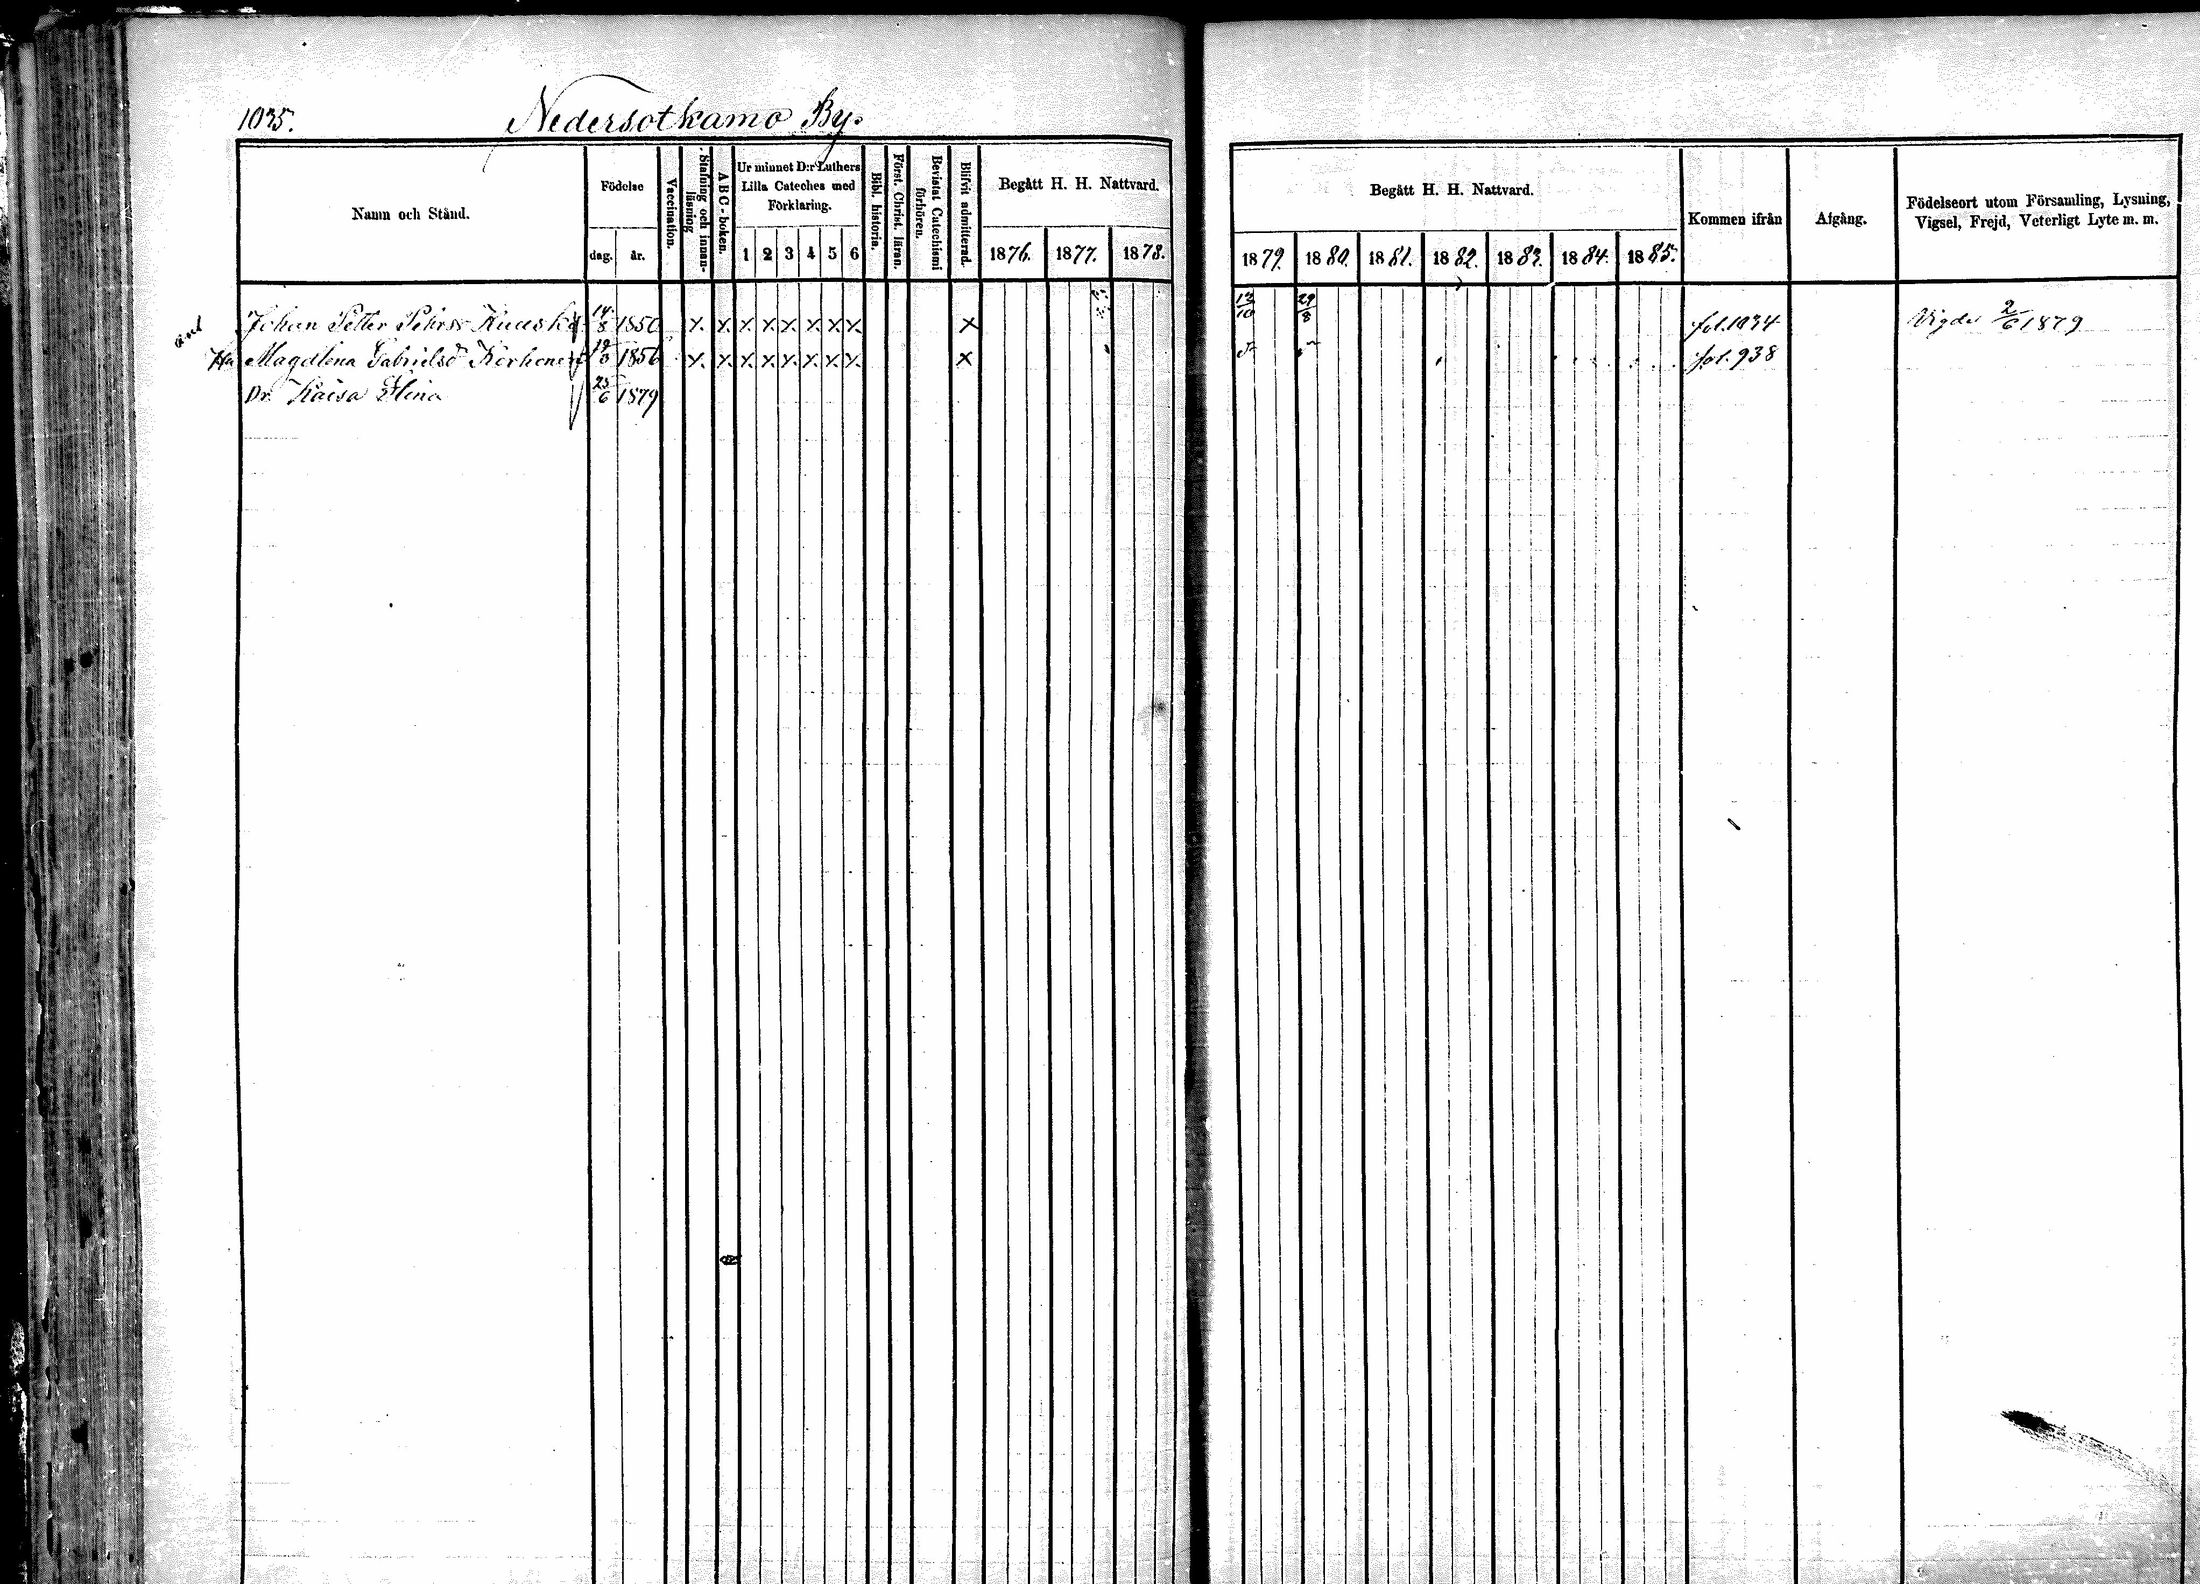 1035. Nedersotkamo By.
Namn och Stånd. Födelse dag. år. Vaccination. Stafning och innanläsning A B C-boken. Ur minnet D:r Luthers Lilla Cateches med Förklaring. 1 2 3 4 5 6 Bibl. historia. Först. Christ. läran. Bevistat Catechismi förhören. Blifvit admitterad. Begått H. H. Nattvard. 1876. 1877. 1878.
Begått H. H. Nattvard. 1879. 1880. 1881. 1882. 1883. 1884. 1885. Kommen ifrån Afgång. Födelseort utom Församling, Lysning, Vigsel, Frejd, Veterligt Lyte m. m.
Johan Petter Pehrss 14/8 1850 x x x x x x x x x 13/10 29/8 fol. 1034 Vigde 2/6 1879
Hu Magdlena Gabrielsd Korhonen 1856 x x x x x x x x x fol. 938
Dr. Kaisa Stina 25/6 1879